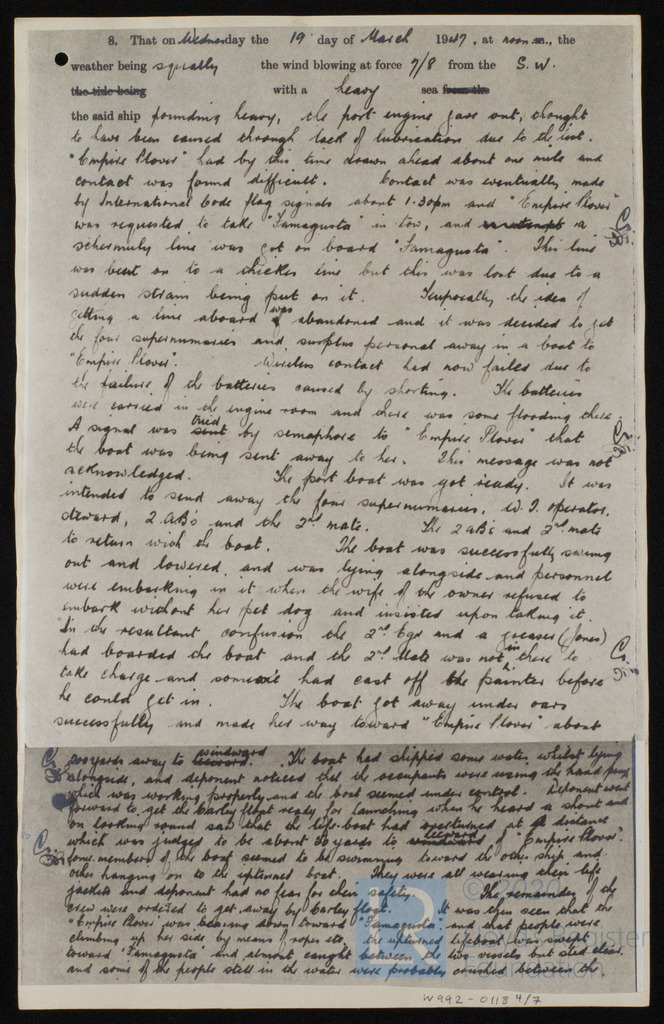 8. That on Wednesday the 19 day of March 1947, at noon m., the
weather being squally the wind blowing at force 7/8 from the S.W.
the tide being with a heavy sea from the
the said ship pounding heavy, the port engine gave out, thought
to have been caused through lack of lubrication due to the list.
"Empire Plover" had by this time drawn ahead about one mile and
contact was found difficult. Contact was eventually made
by International Code flag signals about 1.30pm and "Empire Plover"
was requested to take "Famagusta" in tow, and a
schermuly line was got on board "Famagusta". This line
was bent on to a thicker line but this was lost due to a
sudden strain being put on it. Temporally the idea of
getting a line aboard was abandoned and it was decided to get
the four supernumaries and surplus personal away in a boat to
"Empire Plover". Wireless contact had now failed due to
the failure of the batteries caused by shorting. The batteries
were carried in the engine room and there was some flooding there.
A signal was sent tried by semaphore to "Empire Plover" that
the boat was being sent away to her. This message was not
acknowledged. The port boat was got ready. It was
intended to send away the four supernumaries, W.T. operator,
steward, 2 ABs and the 2nd mate. The 2 ABs and 2nd mate
to return with the boat. The boat was successfully swung
out and lowered, and was lying alongside and personnel
were embarking in it when the wife of the owner refused to
embark without her pet dog and insisted upon taking it.
In the resultant confusion the 2nd Egr and a greaser (Jones)
had boarded the boat and the 2nd Mate was not in there to
take charge and someone had cast off the painter before
he could get in. The boat got away under oars
successfully and made her way toward "Empire Plover" about
900 yards away to windward. The boat had shipped some water whilst lying
alongside, and deponent noticed that the occupants were using the hand pump
which was working properly and the boat seemed under control. Deponent went
forward to get the Carley float ready for launching when he heard a shout and
on looking round saw that the life-boat had overturned at a distance
which was judged to be about 30 yards to leeward of "Empire Plover".
Some members of the boat seemed to be swimming toward the other ship and
other hanging on to the upturned boat. They were all wearing their life
jackets and deponent had no fear for their safety. The remainder of the
crew were ordered to get away by Carley float. It was then seen that the
"Empire Plover" was bearing down toward "Famagusta" and that people were
climbing up her side by means of ropes etc. the upturned lifeboat was swept
toward "Famagusta" and almost caught between the two vessels but slid clear.
and some of the people still in the water were probably crushed between the
© 2020
Register
Foundation
W992 - 0118 4/7